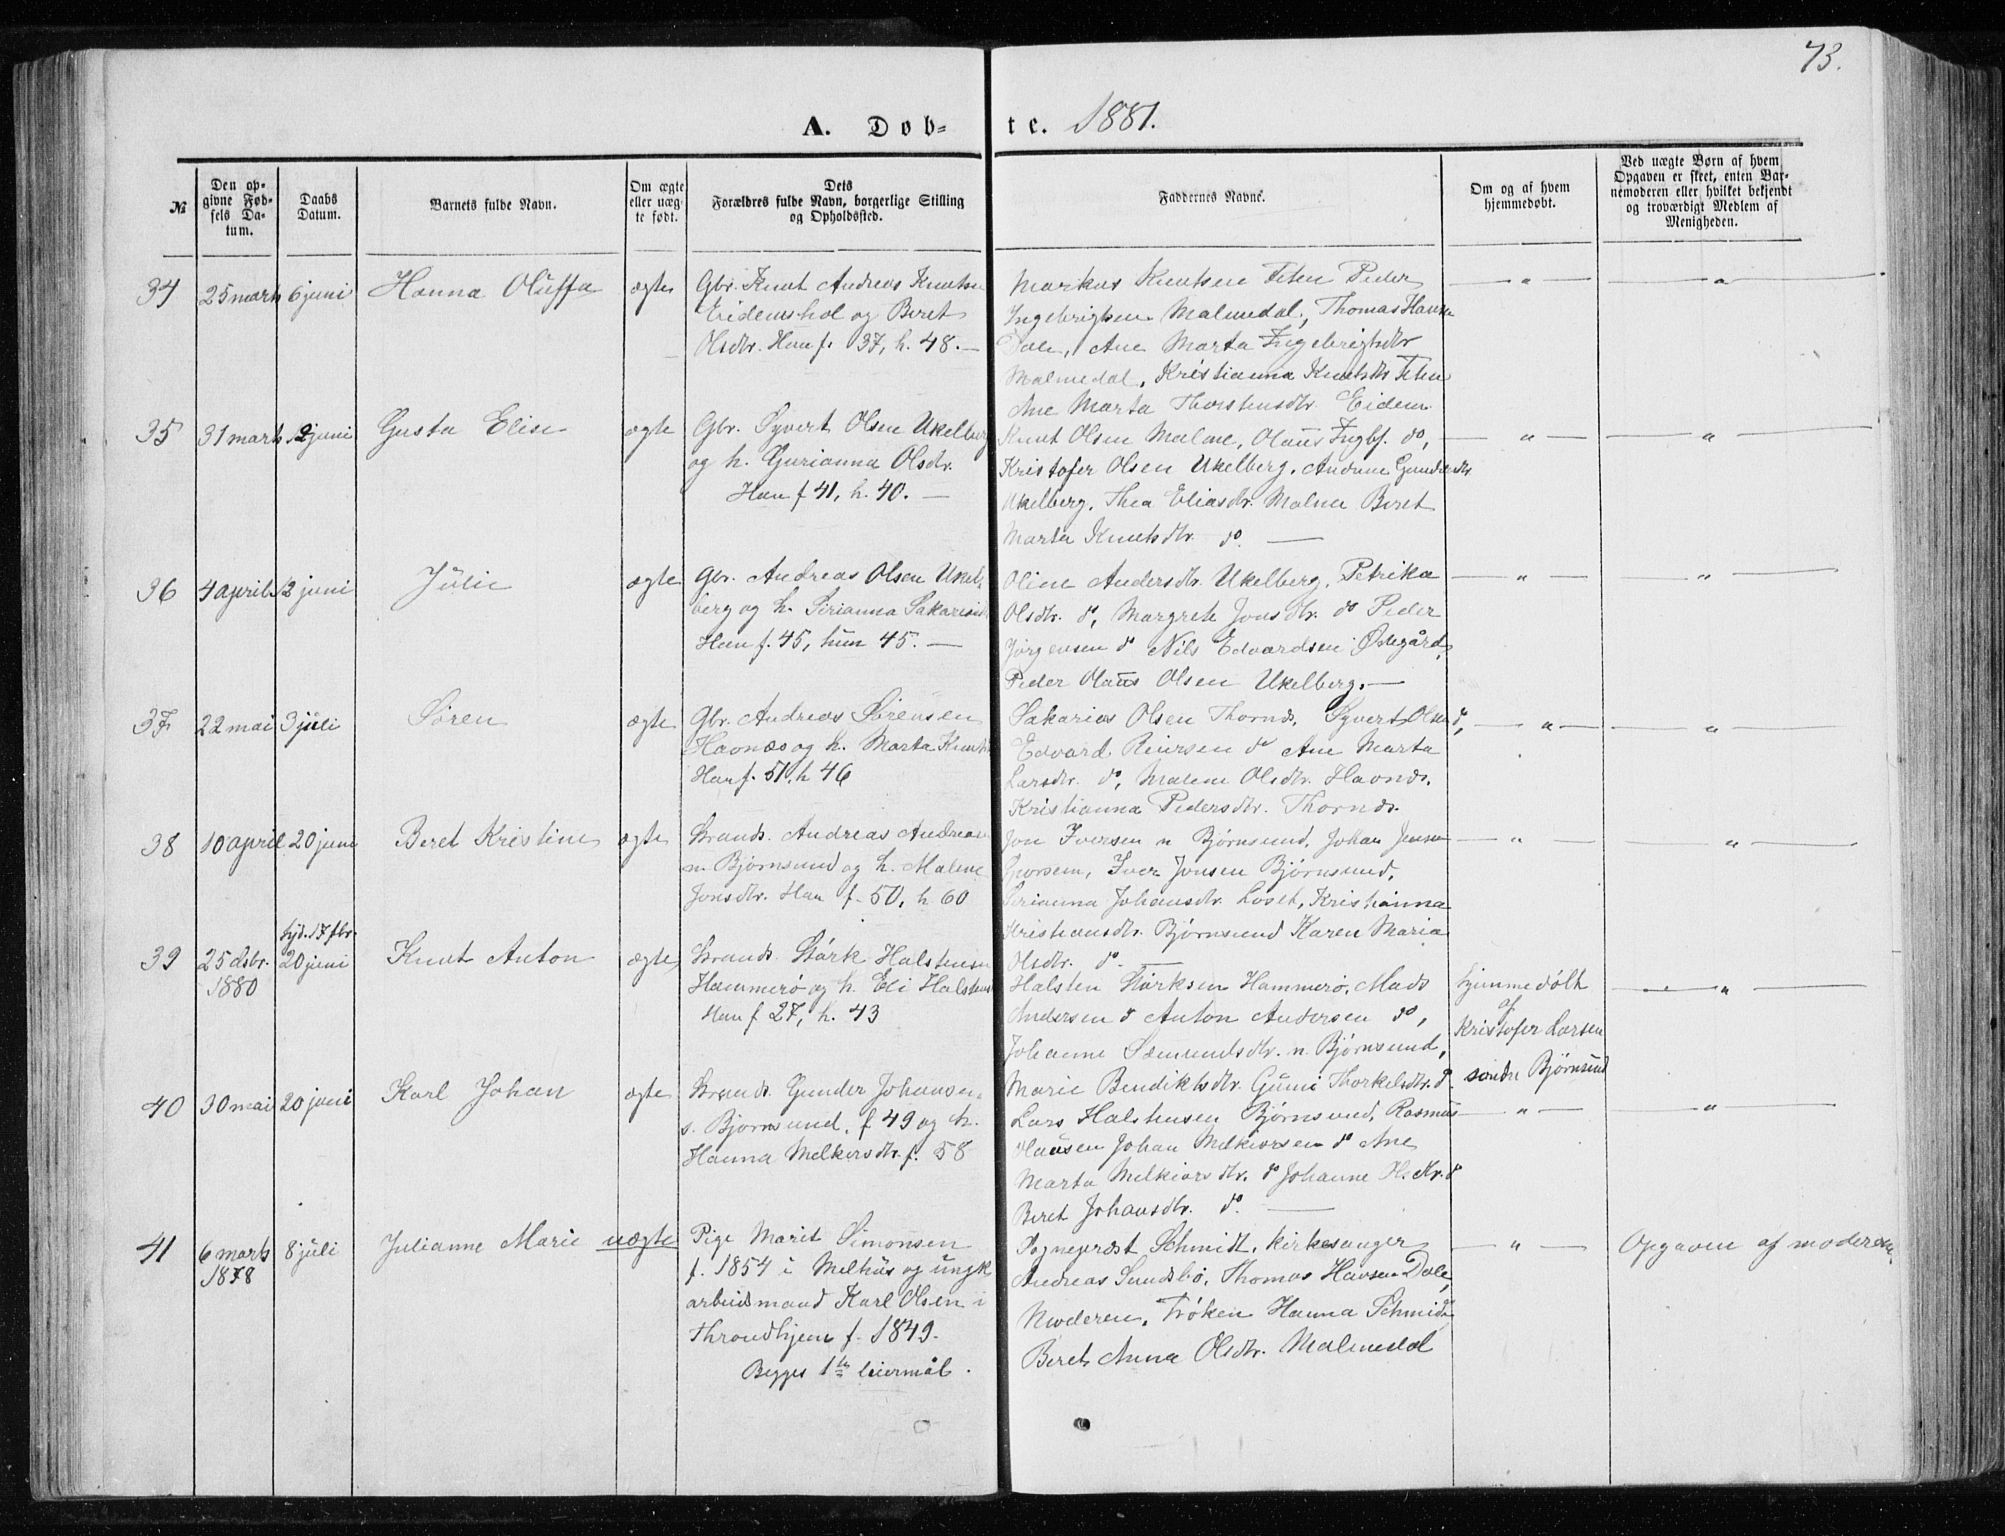 73.
A. Døb-te. 1881.
№
Den opgivne Fødsels Datum.
Daabs Datum.
Barnets fulde Navn.
Om ægte eller uægte født.
Dets Forældres fulde Navn, borgerlige Stilling og Opholdssted.
Faddernes Navne.
Om og af hvem hjemmedøbt.
Ved uægte Børn af hvem Opgaven er skeet, enten Barnemoderen eller hvilket bekjendt og troværdigt Medlem af Menigheden.
34 25 marts 6 juni Hanna Oluffa ægte
Gbr. Knut Andreas Knutsen
Eidemshol og Beret
Olsdtr. Han f. 37, h. 48. —
Markus Knutsen Peder
Ingebrigtsen Malmedal, Thomas Hansen
Dale, Ane Marta Ingebrigtsdtr
Malmedal, Kristianna Knutsdtr
Ane Marta Thorstensdtr. Eidem
— " — — " —
35 31 marts 12 juni Gusta Elise ægte
Gbr. Syvert Olsen Ukelberg
og h. Gurianna Olsdr.
Han f 41, h. 40. —
Knut Olsen Malme, Olaus Ingbr. do,
Kristofer Olsen Ukelberg, Gundersdtr
Ukelberg, Thea Eliasdtr. Malme Beret
Marta Knutsdtr. do. —
— " — — " —
36 4 april 12 juni Julie ægte
Gbr. Andreas Olsen Ukel
berg og h. Sirianna Sakariasdtr
Han f. 45, hun 45. —
Oline Andersdtr. Ukelberg, Petrika
Olsdtr. do, Margrete Jonsdtr. do Peder
Jørgensen do Nils Edvardsen Ødegård,
Peder Olaus Olsen Ukelberg. —
— " — — " —
37 22 mai 3 juli Søren ægte
Gbr. Andreas Sørensen
Havnæs og h. Marta Knuts
Han f. 51, h 46
Sakarias Olsen Thornæs, Syvert Olsen do,
Edvard Reiersen do Ane Marta
Larsdtr. do, Malene Olsdtr. Havnæs,
Kristianna Pedersdtr. Thornæs.
— " — — " —
38 10 april 20 juni Beret Kristine ægte
Strands. Andreas Andreas
n. Bjørnsund og h. Malene
Jonsdtr. Han f. 50, h 60
Jon Iversen n Bjørnsund, Johan Jensen
Iver Jonsen Bjørnsund,
Sirianna Johansdtr. Loset, Kristianna
Kristiansdtr. Bjørnsund Karen Maria
Olsdtr. do. —
— " — — " —
hjd. 17 fbr.
39 25 dsbr. 20 juni Knut Anton ægte
1880
Strands. Størk Halstensen
Hammerø og h. Eli Halstens
Han f 27, h. 43
Halsten Størksen Hammerø, Mads
Andersen do Anton Andersen do,
Johanne Sæmundsdtr. n. Bjørnsund,
Marie Bendiktsdtr. Guni Thorkelsdtr. do
hjemmedøbt
af
Kristofer Larsen
søndre Bjørnsund
— " —
40 30 mai 20 juni Karl Johan ægte
Strands. Gunder Johansen
s. Bjørnsund, f 49 og h.
Hanna Melkersdtr. f. 58
Lars Halstensen Bjørnsund, Rasmus
Olausen Johan Melkiorsen do Ane
Marta Melkiorsdtr. do Johanne H. Kr. do
Beret Johansdtr. do. —
— " — — " —
41 6 marts 8 juli Julianne Marie uægte
1878
Pige Marit Simonsen
f. 1854 i Melhus og ungk.
arbeidsmand Karl Olsen i
Throndhjem f. 1849.
Begges 1ste leiermål.
Sognepræst Schmidt, kirkesanger
Andreas Sundsbø, Thomas Hansen Dale,
Moderen, Frøken Hanna Schmidt
Beret Anna Olsdtr. Malmedal
— " —
Opgaven af moderen.